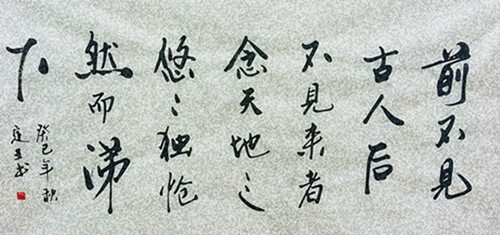 前不見
古人后
不見来者
念天地之
悠々独怆
然而涕
下
癸巳年秋
书